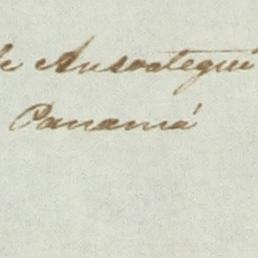 de Ansoategui
Panamá